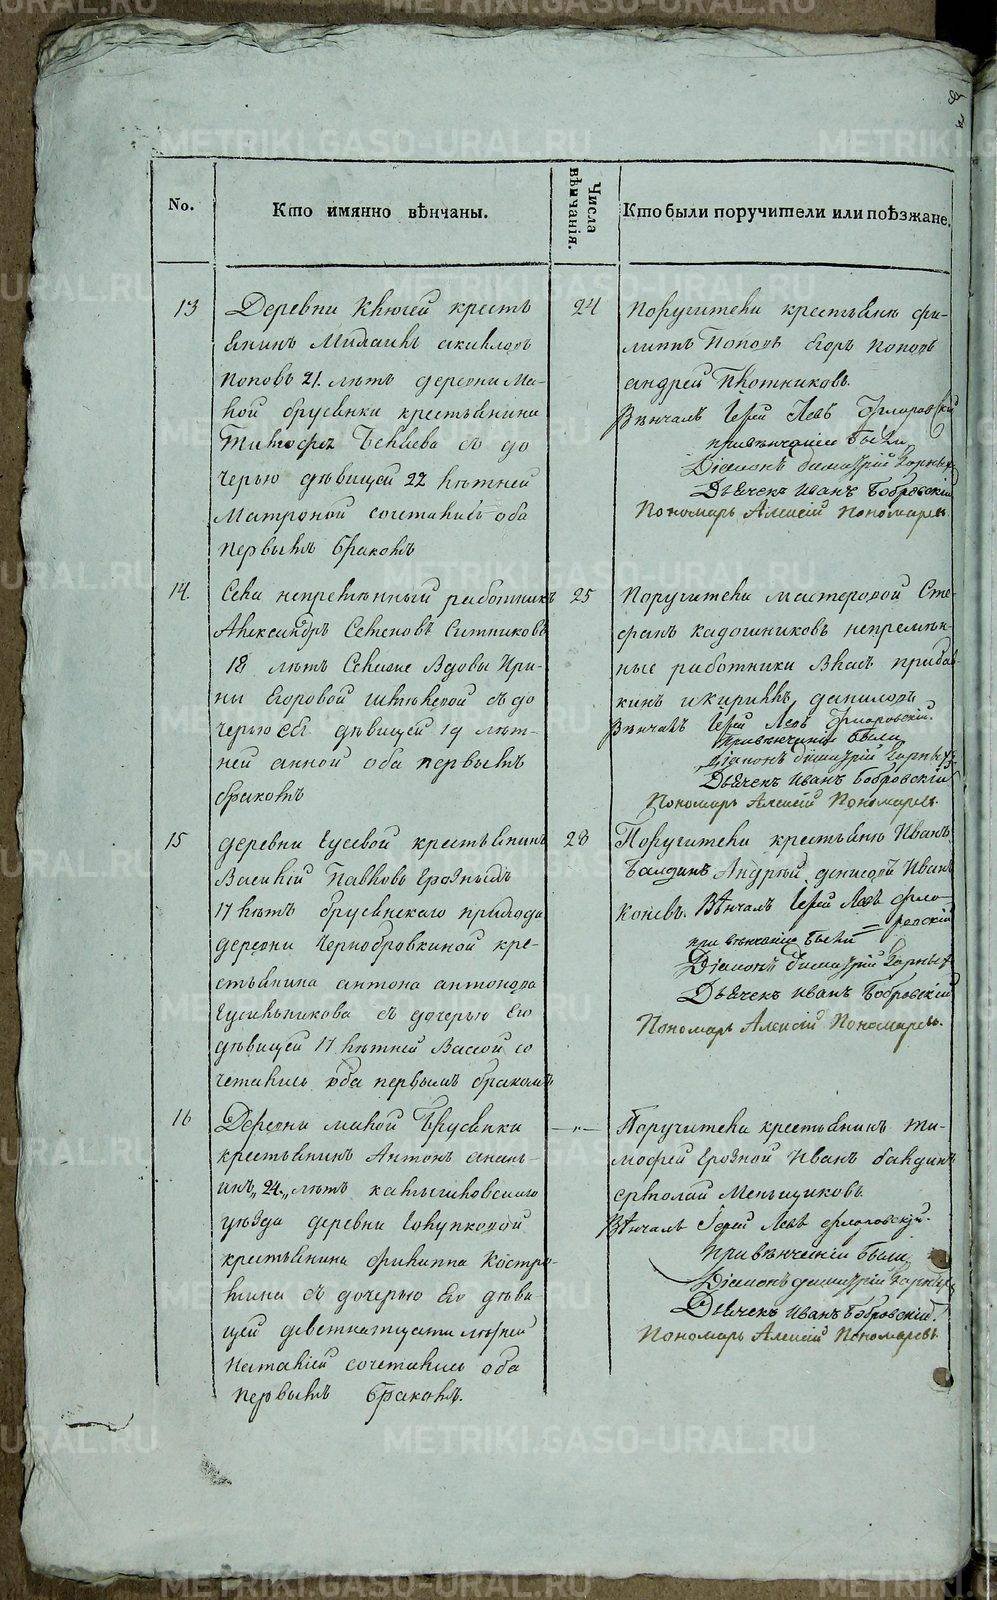 No.
Кто имянно вѣнчаны.
Числа вѣнчанія.
Кто были поручители или поѣзжане.
13
Деревни Ключей кресть
янинъ Михаилъ
Поповъ 21. лѣтъ деревни Ма-
лой брусянки крестьянина
Беляева съ до
черью дѣвицей 22 лѣтней
Матроной сочетались оба
первымъ бракомъ
24
Поручители крестьяне фи-
липпъ Поповъ Егоръ Поповъ
андрей Плотниковъ.
Вѣнчалъ Іерей Левъ Флоровскій
при вѣнчаніи были
Діаконъ димитрій
Дьячекъ Иванъ Бобровскій
Пономарь Алексій Пономаревъ.
14.
Села непремѣнный работникъ
Александръ Семеновъ Ситниковъ
18 лѣтъ Вдовы Ири-
ны Егоровой съ до
черью Её дѣвицей 19 лѣт-
ней анной оба первымъ
бракомъ
25
Поручители мастеровой Сте-
фанъ непремѣн-
ные работники Власъ
кинъ икириллъ даниловъ
Вѣнчалъ Іерей Левъ Флоровскій.
При вѣнчаніи были
Діаконъ димитрій
Дьячекъ Иванъ Бобровскій
Пономарь Алексій Пономаревъ.
15
деревни Гусевой крестьянинъ
Василій Павловъ Грозныхъ
17 лѣтъ брусянскаго прихода
деревни Чернобровкиной кре-
стьянина антона антонова
Гусельникова съ дочерью Его
дѣвицей 17 лѣтней Вассой со
четались оба первымъ бракомъ
28
Поручители крестьяне Иванъ
Балдинъ Андрей денисовъ Иванъ
Коневъ. Вѣнчалъ Іерей Левъ фло-
ровскій
при вѣнчаніи были
Діаконъ димитрій
Дьячекъ Иванъ Бобровскій
Пономарь Алексій Пономаревъ.
16
Деревни малой Брусянки
крестьянинъ Антонъ анань-
инъ „24„ лѣтъ
уѣзда деревни
крестьянина филиппа Костро-
мина съ дочерью Его дѣви
цей деветнатцати лѣтней
Наталіей сочетались оба
первымъ бракомъ.
—„—
Поручители крестьянинъ ти-
мофей Грозной Иванъ балдинъ
ермолай Меньщиковъ
Вѣнчалъ Іерей Левъ флоровскій.
При вѣнчаніи были
Діаконъ димитрій
Дьячекъ Иванъ Бобровскій.
Пономарь Алексій Пономаревъ.
METRIKI.GASO-URAL.RU